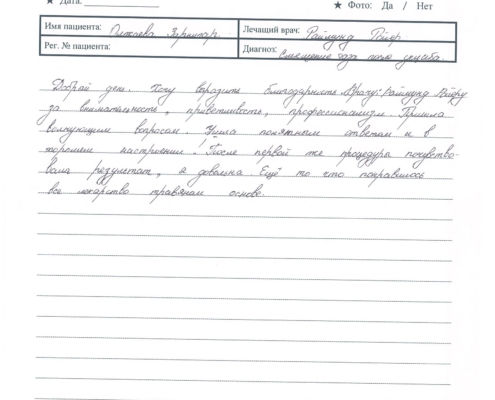 ★ Дата:
★ Фото: Да / Нет
Имя пациента: Зернигар
Лечащий врач: Раймунд Ройер
Рег. № пациента:
Диагноз: Смещение таза
Добрый день. Хочу выразить благодарность Врачу: Раймунд Ройеру
за внимательность, приветливость, профессионализм. Пришла
волнующим вопросам. Ушла понятным ответам и в
хорошем настроении! После первой же процедуры почувство-
вала результат, я довольна. Ещё то что понравилось
все лекарство травяном основе.